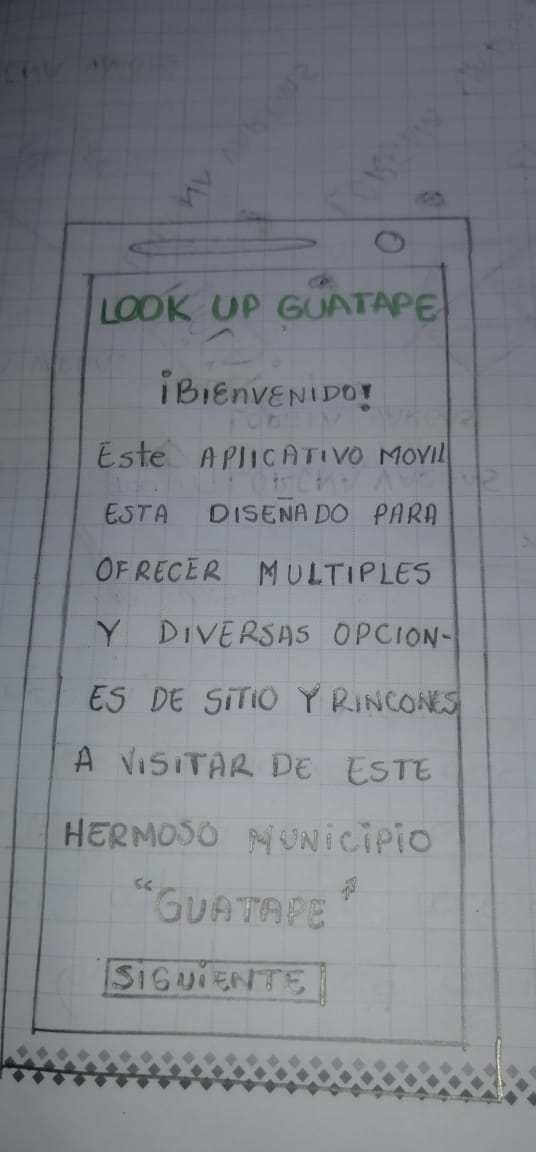 LOOK UP GUATAPE
¡BIENVENIDO!
Este APLICATIVO MOVIL
ESTA DISEÑADO PARA
OFRECER MULTIPLES
Y DIVERSAS OPCION-
ES DE SITIO Y RINCONES
A VISITAR DE ESTE
HERMOSO MUNICIPIO
"GUATAPE"
SIGUIENTE